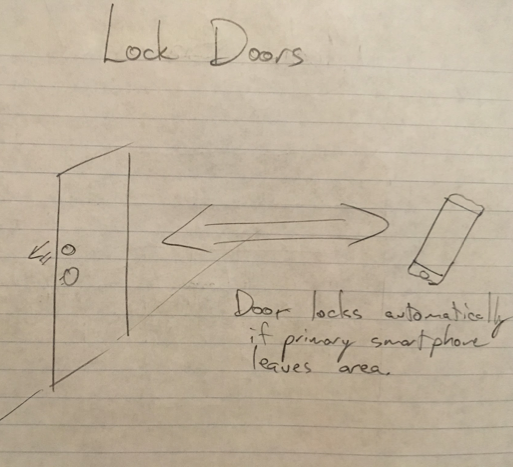 Lock Doors
Door locks automatically
if primary smartphone
leaves area.